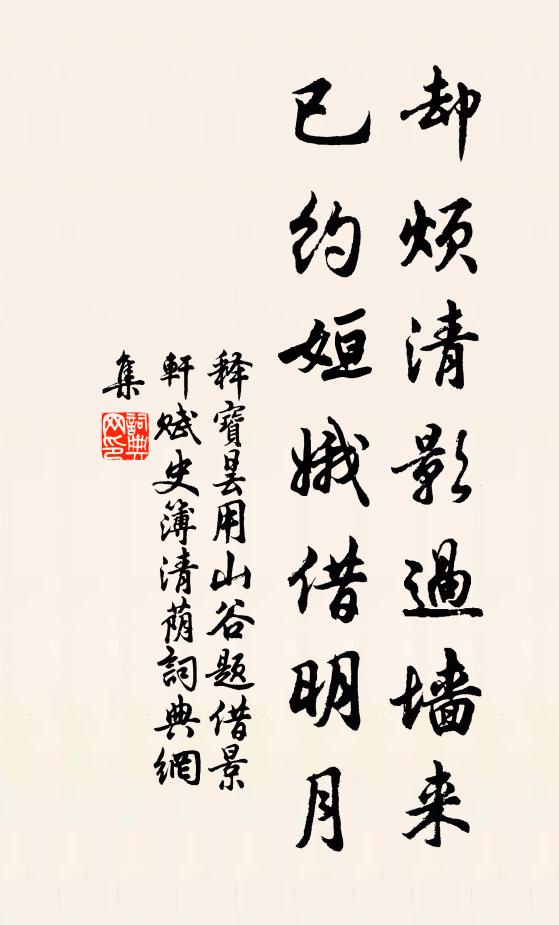 却烦清影過墙来
已约姮娥借明月
释寶昙用山谷题借景
軒赋史簿清荫詞典網
集
詞典网印